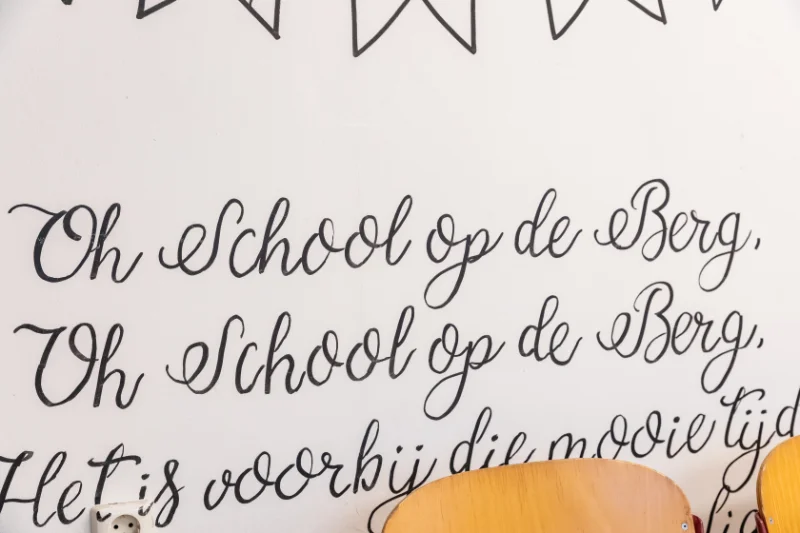 Oh School op de Berg,
Oh School op de Berg,
Het is voorbij die mooie tijd